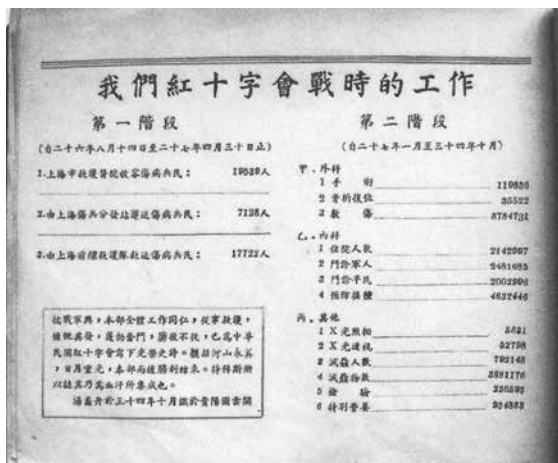 我們紅十字會戰時的工作
第一階段
(自二十六年八月十四日至二十七年四月三十日止)
1.上海市救護醫院收容傷病兵民： 19539人
2.由上海傷兵分發站運送傷病兵民： 7128人
3.由上海前線救護隊救送傷病兵民： 17722人
抗戰軍興，本部全體工作同仁，從事救護，
民國紅十字會寫下光榮史詩。
，日月重光，本部而逮勝利結束。
以誌其乃為血汗所集成也。
於三十四年十月識於貴陽圖雲關
第二階段
(自二十七年一月至三十四年十月)
甲．外科
1 手 術 119836
2 骨折復位 35522
3 敷 傷 8784731
乙．內科
1 住院人數 2142997
2 門診軍人 2481685
3 門診平民 2002996
4 預防接種 4632446
丙．其他
1 X光照相 5631
2 X光透視 52798
3 滅蝨人數 792148
4 滅蝨物數 3881176
5 檢 驗 226593
6 特別營養 934833